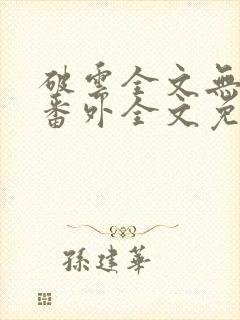 破雲全文無
番外全文免
孫建華